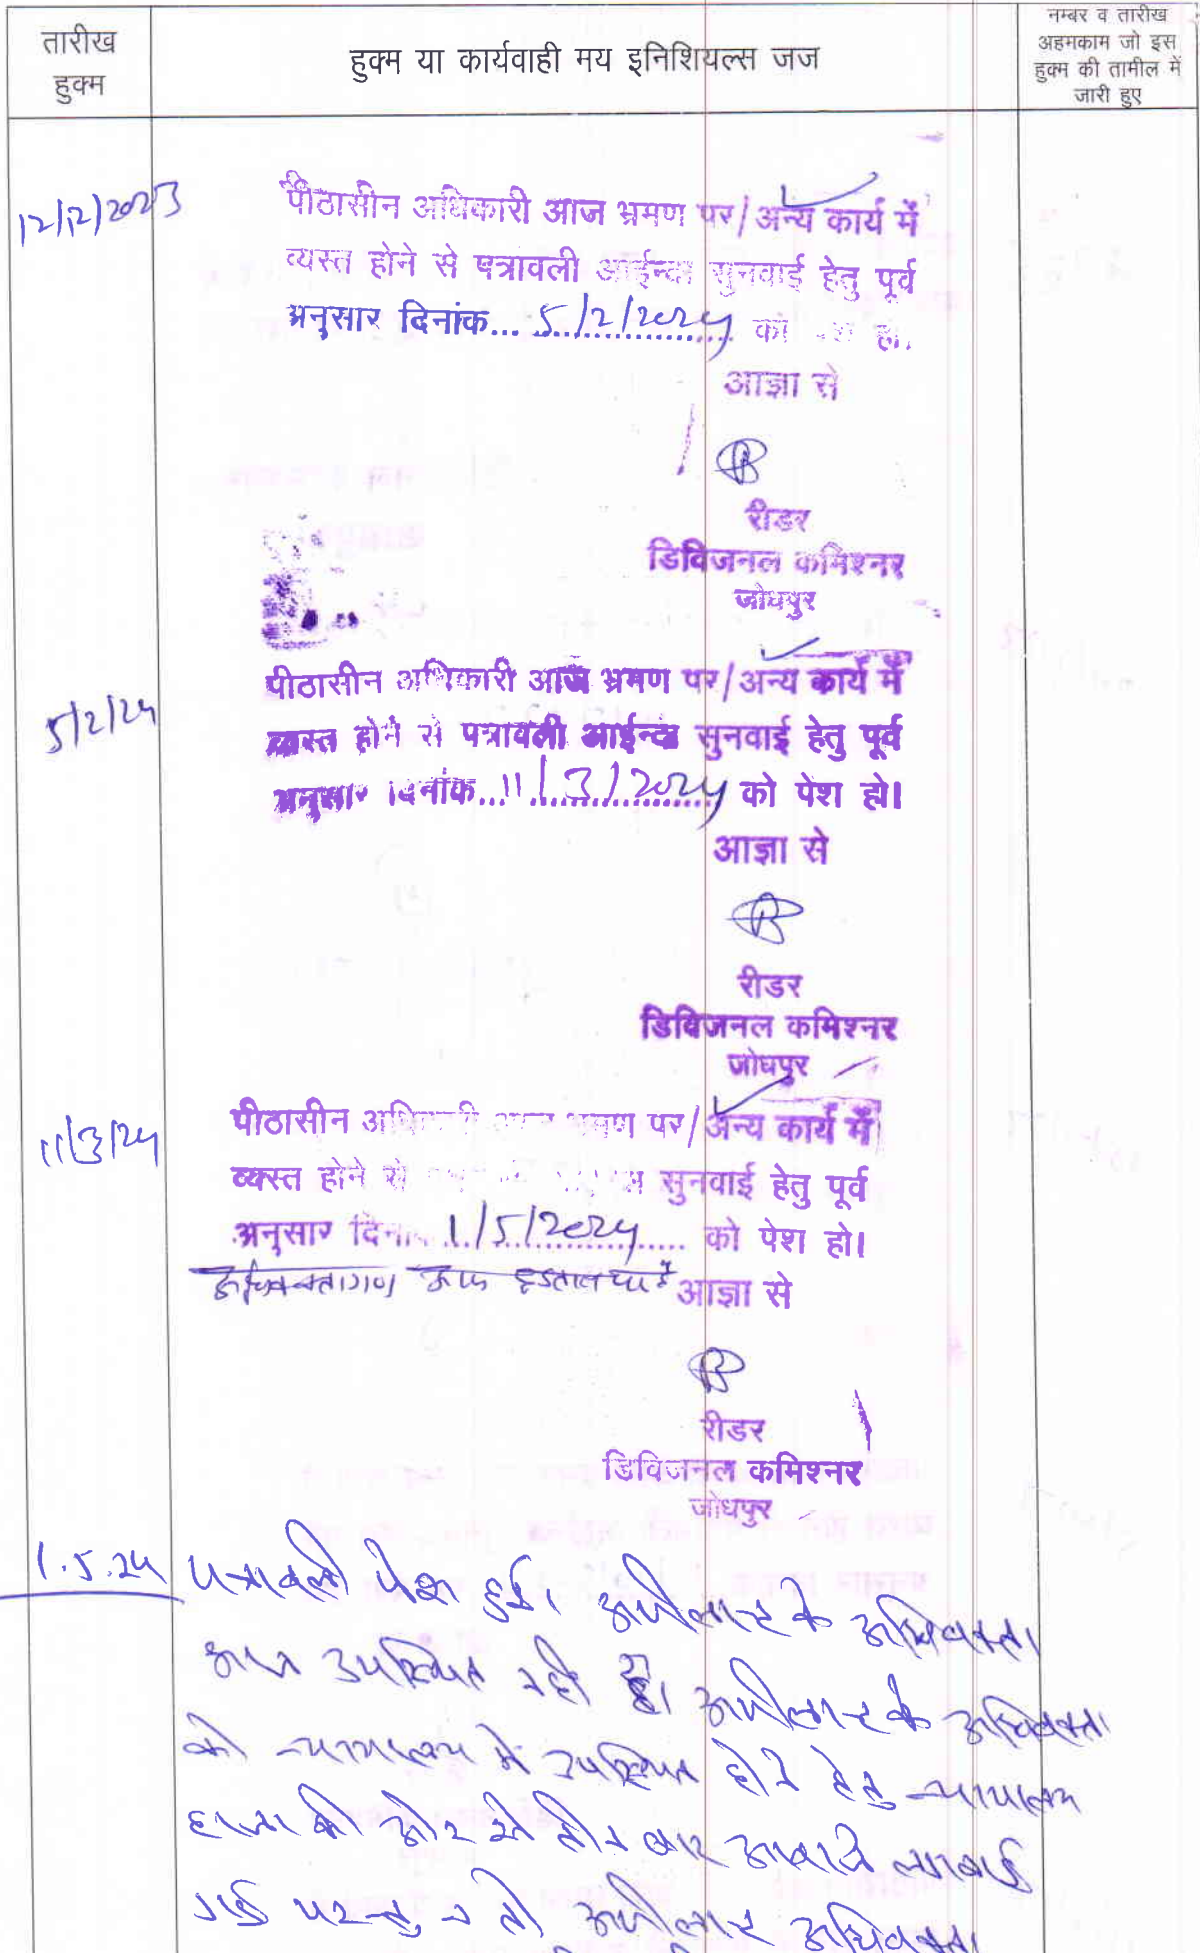 तारीख
हुक्म
हुक्म या कार्यवाही मय इनिशियल्स जज
नम्बर व तारीख
अहमकाम जो इस
हुक्म की तामील में
जारी हुए
12/12/2023
पीठासीन अधिकारी आज भ्रमण पर/अन्य कार्य में
व्यस्त होने से पत्रावली आईन्दा सुनवाई हेतु पूर्व
अनुसार दिनांक... 5/2/2024 को पेश हो।
आज्ञा से
रीडर
डिविजनल कमिश्नर
जोधपुर
5/2/24
पीठासीन अधिकारी आज भ्रमण पर/अन्य कार्य में
व्यस्त होने से पत्रावली आईन्दा सुनवाई हेतु पूर्व
अनुसार दिनांक... 11/3/2024 को पेश हो।
आज्ञा से
रीडर
डिविजनल कमिश्नर
जोधपुर
11/3/24
पीठासीन अधिकारी आज भ्रमण पर/अन्य कार्य में
व्यस्त होने से सुनवाई हेतु पूर्व
अनुसार दिनांक 1/5/2024 को पेश हो।
अधिवक्तागण
आज्ञा से
रीडर
डिविजनल कमिश्नर
जोधपुर
1.5.24
पत्रावली पेश हुई। अपीलान्ट के अधिवक्ता
आज उपस्थित नही है। अपीलान्ट के अधिवक्ता
को न्यायालय मे उपस्थित होने हेतु न्यायालय
हाजा की ओर से तीन बार आवाजे लगवाई
गई परन्तु न तो अपीलान्ट अधिवक्ता